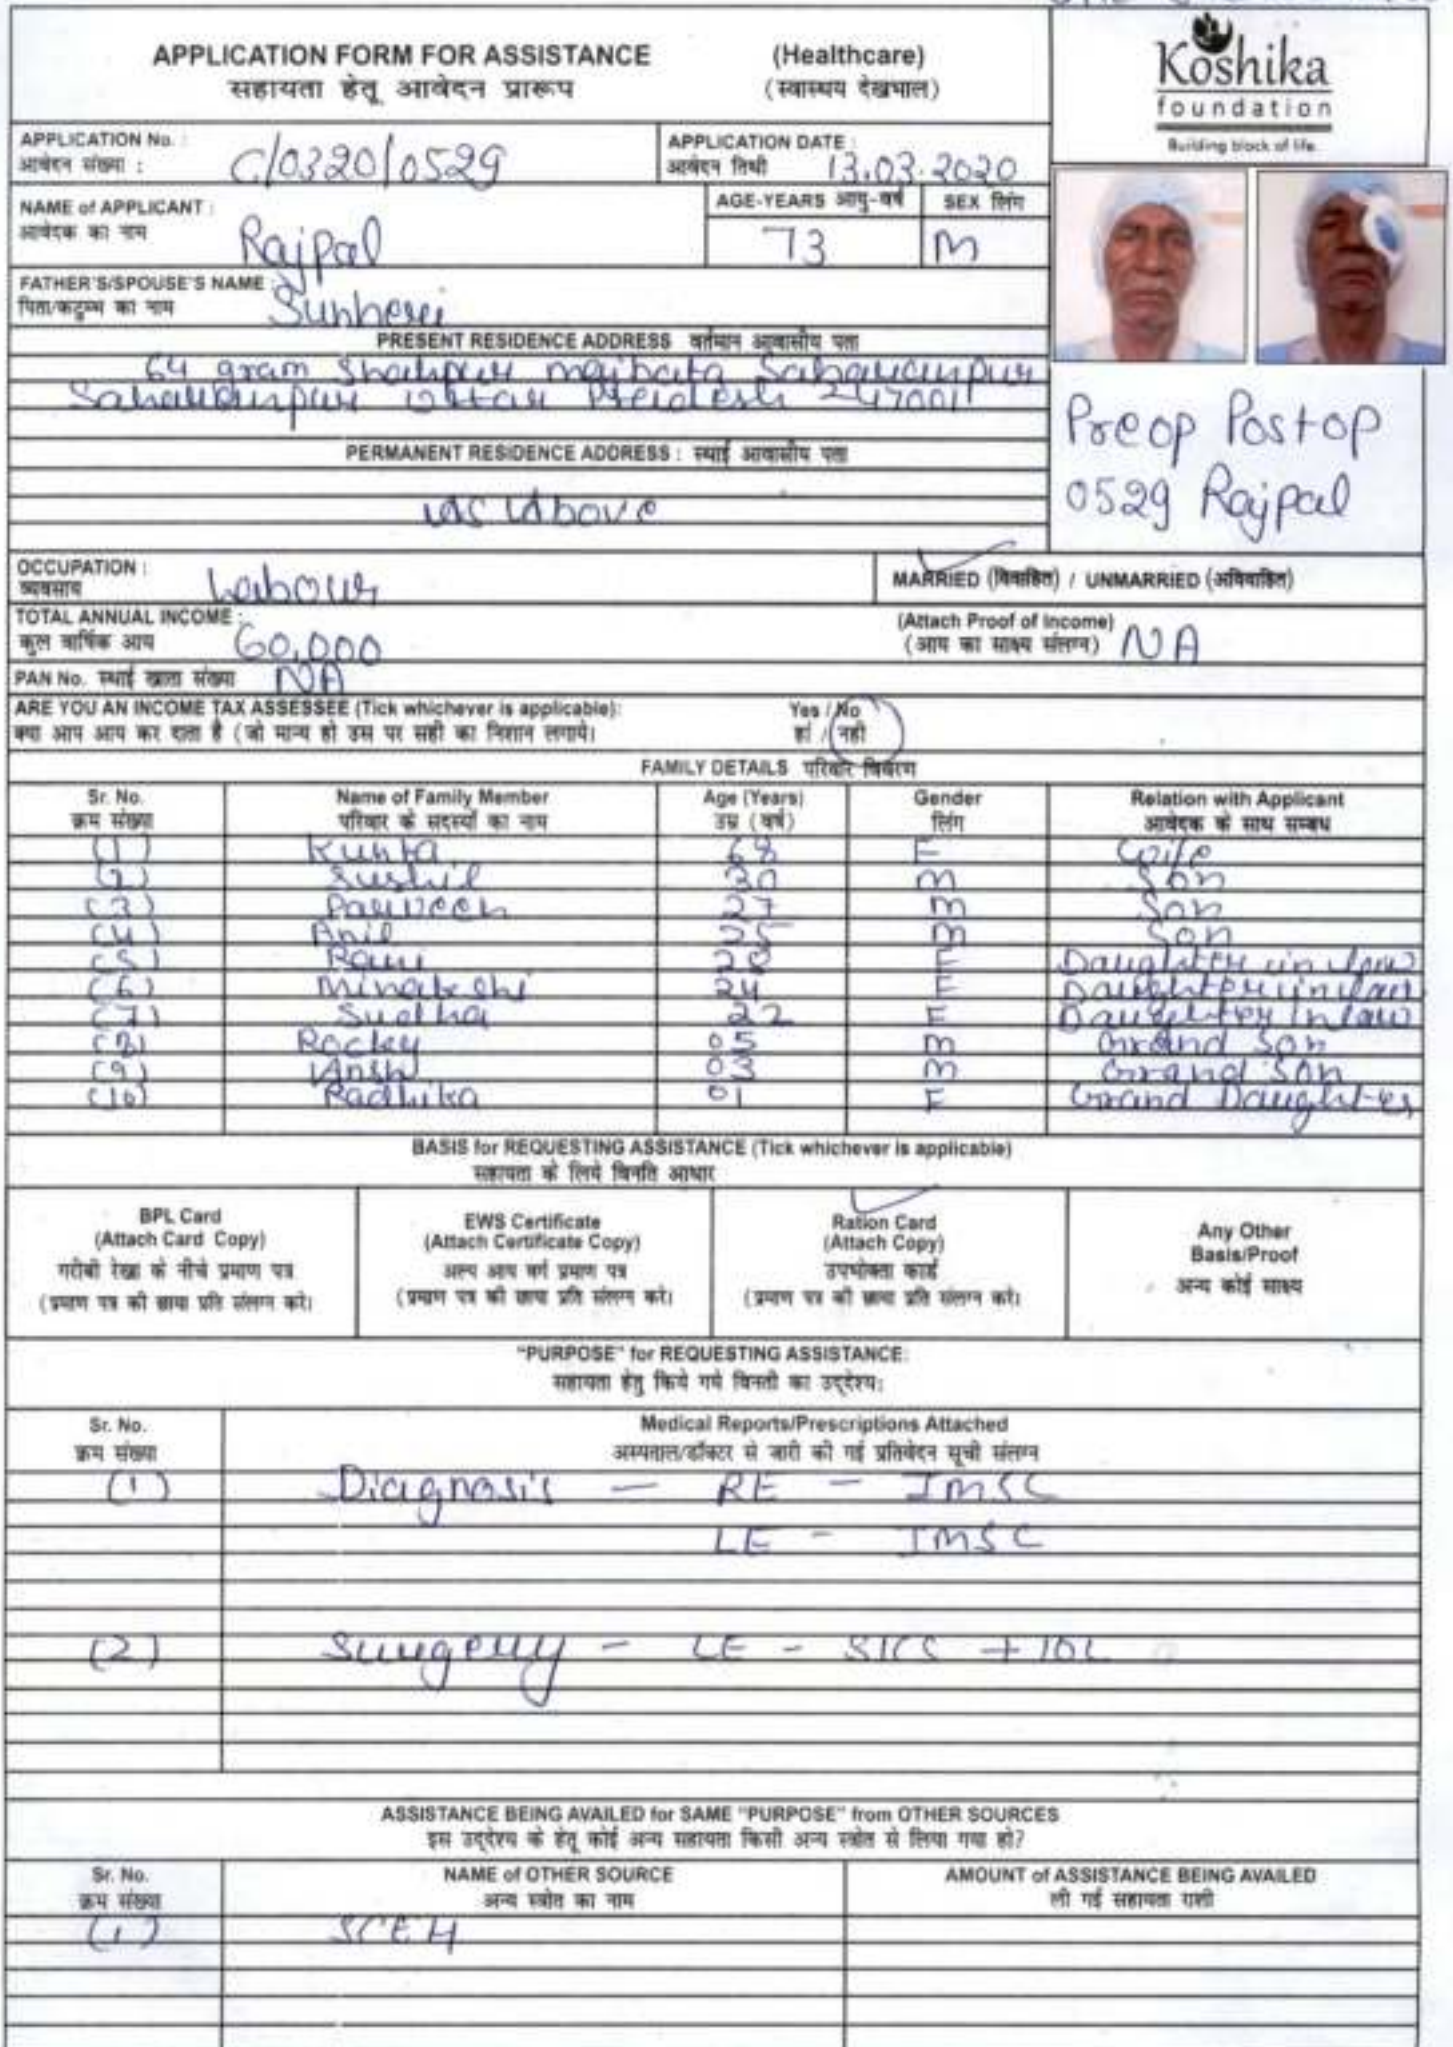 APPLICATION FORM FOR ASSISTANCE (Healthcare)
सहायता हेतू आवेदन प्रारूप (स्वास्थय देखभाल)
Koshika
foundation
Building block of life.
APPLICATION No. :
आवेदन संख्या : C/0320/0529
APPLICATION DATE :
आवेदन तिथी 13.03.2020
NAME of APPLICANT :
आवेदक का नाम Rajpal
AGE-YEARS आयु-वर्ष SEX लिंग
73 M
FATHER'S/SPOUSE'S NAME :
पिता/कटुम्भ का नाम
PRESENT RESIDENCE ADDRESS वर्तमान आवासीय पता
64 gram
Uttar Pradesh 247001
PERMANENT RESIDENCE ADDRESS : स्थाई आवासीय पता
as above
Preop Postop
0529 Rajpal
OCCUPATION :
व्यवसाय Labour
MARRIED (विवाहित) / UNMARRIED (अविवाहित)
TOTAL ANNUAL INCOME :
कुल वार्षिक आय 60,000
(Attach Proof of Income)
(आय का साक्ष्य संलग्न) NA
PAN No. स्थाई खाता संख्या NA
ARE YOU AN INCOME TAX ASSESSEE (Tick whichever is applicable): Yes / No
क्या आप आय कर दाता है (जो मान्य हो उस पर सही का निशान लगाये। हां / नही
FAMILY DETAILS परिवार विवरण
Sr. No. Name of Family Member Age (Years) Gender Relation with Applicant
क्रम संख्या परिवार के सदस्यों का नाम उम्र (वर्ष) लिंग आवेदक के साथ सम्बध
(1) 68 F Wife
(2) Sushil 30 M Son
(3) Parveen 27 M Son
(4) Anil 25 M Son
(5) F Daughter in law
(6) Minakshi 24 F Daughter in law
(7) Sudha 22 F Daughter in law
(8) Rocky 05 M Grand Son
(9) Ansh 03 M Grand Son
(10) Radhika 01 F Grand Daughter
BASIS for REQUESTING ASSISTANCE (Tick whichever is applicable)
सहायता के लिये विनति आधार
BPL Card
(Attach Card Copy)
गरीबी रेखा के नीचे प्रमाण पत्र
(प्रमाण पत्र की छाया प्रति संलग्न करे।
EWS Certificate
(Attach Certificate Copy)
अल्प आय वर्ग प्रमाण पत्र
(प्रमाण पत्र की छाया प्रति संलग्न करे।
Ration Card
(Attach Copy)
उपभोक्ता कार्ड
(प्रमाण पत्र की छाया प्रति संलग्न करे।
Any Other
Basis/Proof
अन्य कोई साक्ष्य
"PURPOSE" for REQUESTING ASSISTANCE:
सहायता हेतु किये गये विनती का उद्देश्य:
Sr. No. Medical Reports/Prescriptions Attached
क्रम संख्या अस्पताल/डॉक्टर से जारी की गई प्रतिवेदन सूची संलग्न
(1) Diagnosis - RE - IMSC
LE - IMSC
(2) Surgery - LE - SICS + IOL
ASSISTANCE BEING AVAILED for SAME "PURPOSE" from OTHER SOURCES
इस उद्देश्य के हेतू कोई अन्य सहायता किसी अन्य स्त्रोत से लिया गया हो?
Sr. No. NAME of OTHER SOURCE AMOUNT of ASSISTANCE BEING AVAILED
क्रम संख्या अन्य स्त्रोत का नाम ली गई सहायता राशी
(1) SCEH